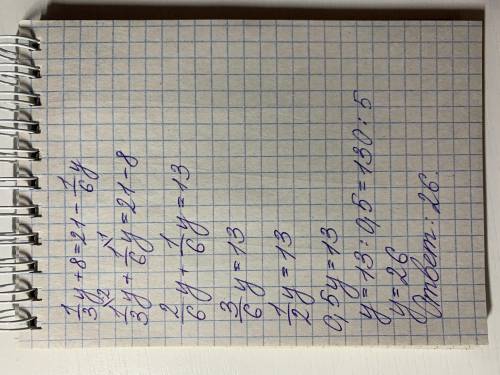 1/3 y + 8 = 21 - 1/6 y
1/3 \2 y + 1/6 \1 y = 21 - 8
2/6 y + 1/6 y = 13
3/6 y = 13
1/2 y = 13
0,5y = 13
y = 13 : 0,5 = 130 : 5
y = 26
Ответ: 26.